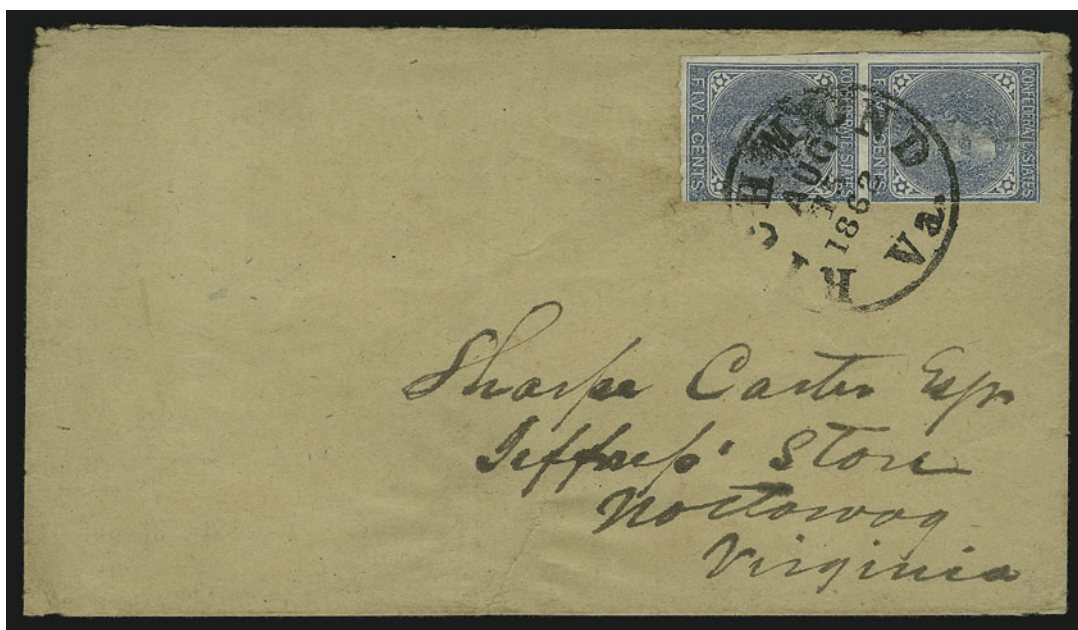 FIVE CENTS
CONFEDERATE STATES
FIVE CENTS
CONFEDERATE STATES
RICHMOND Va.
AUG
15
1862
Sharpe Carter Esqr
Jeffress' Store
Nottoway
Virginia